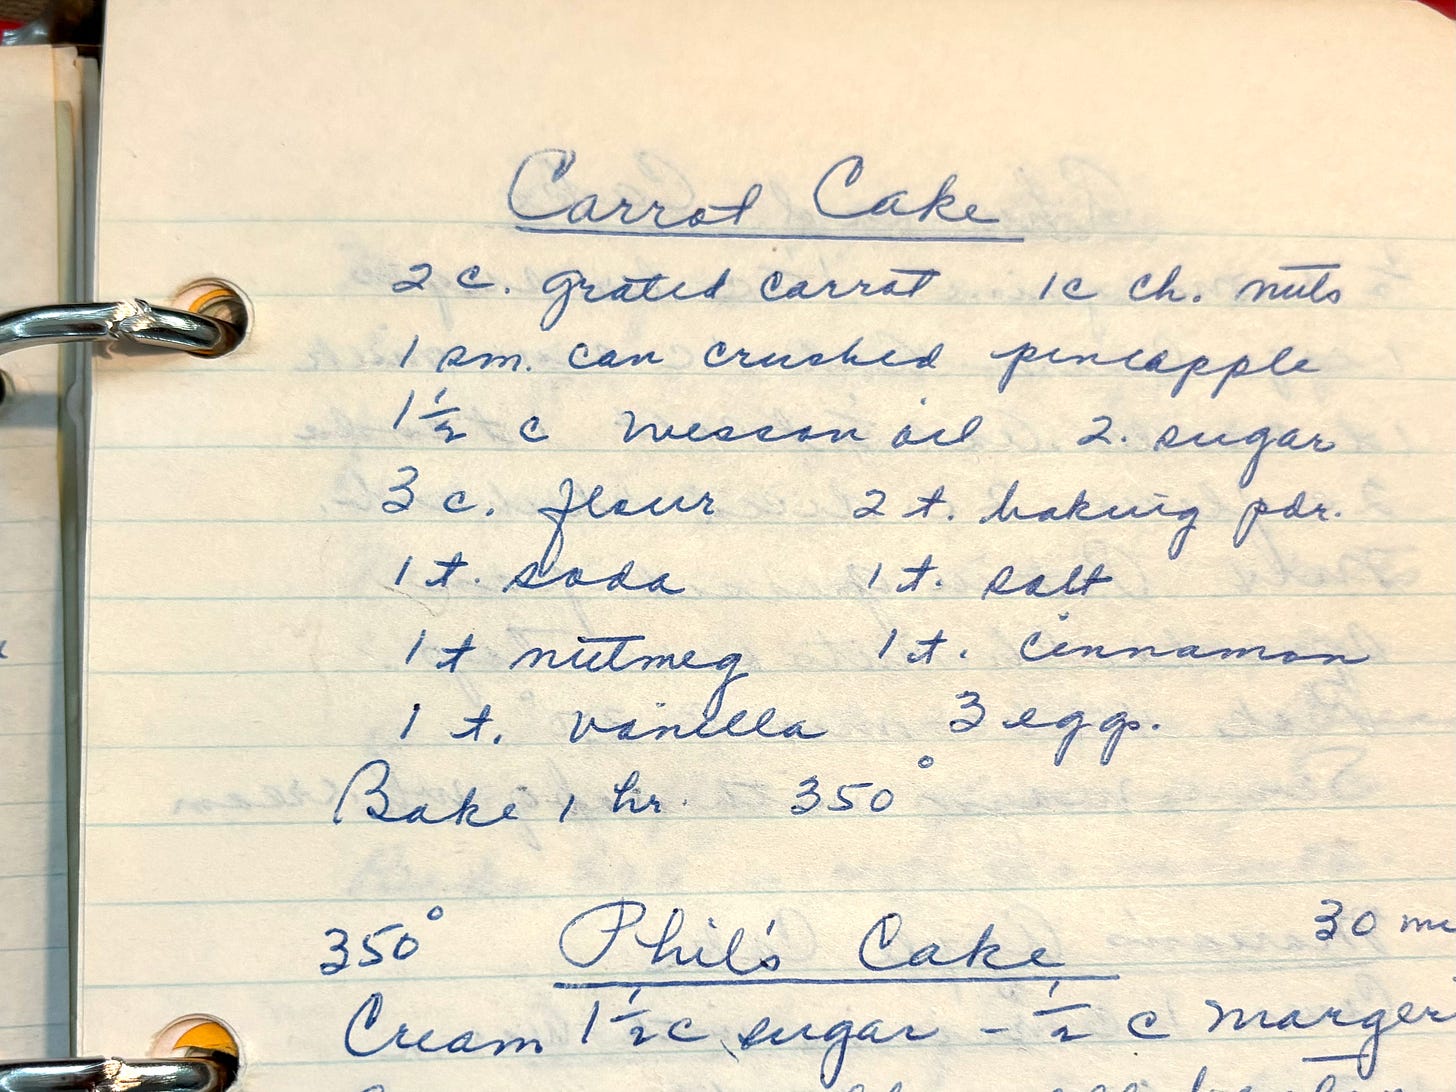 Carrot Cake
2 c. grated carrot 1c ch. nuts
1 sm. can crushed pineapple
1 1/2 c Wesson oil 2. sugar
3 c. flour 2 t. baking pdr.
1 t. soda 1 t. salt
1 t nutmeg 1 t. cinnamon
1 t. vanilla 3 eggs.
Bake 1 hr. 350°
350° Phil's Cake 30
Cream 1 1/2 c sugar - 1/2 c